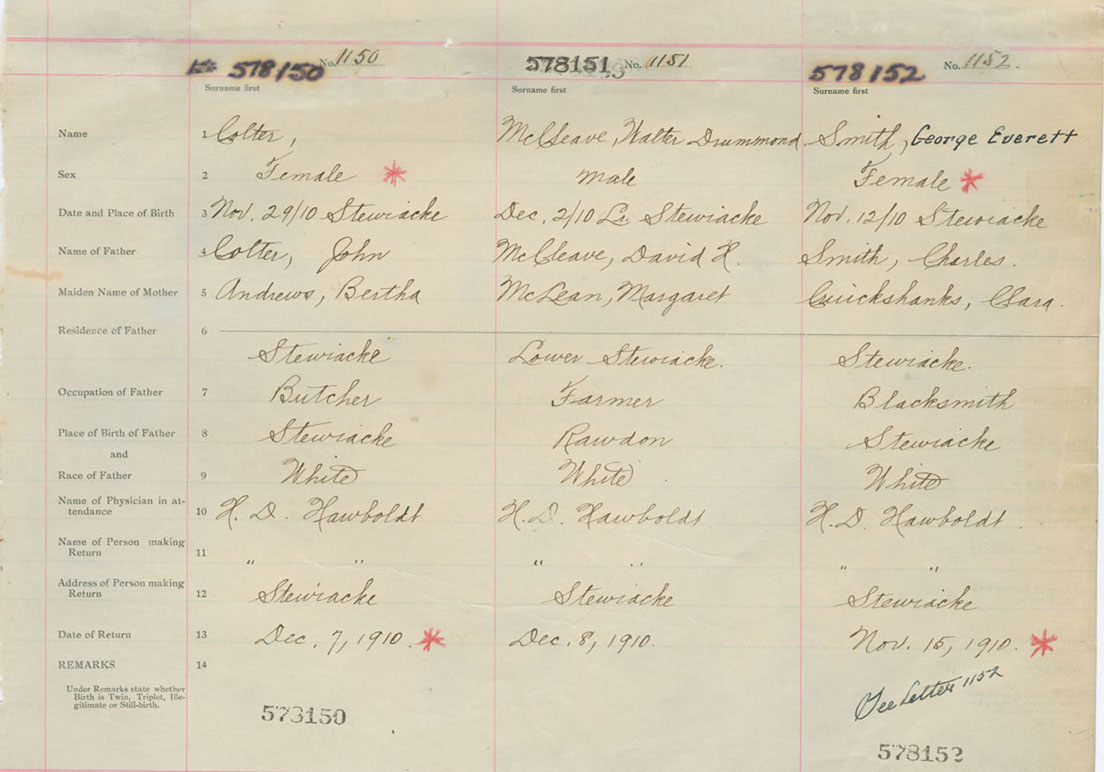 578150 No. 1150 578151 No. 1151 578152 No. 1152.
Surname first Surname first Surname first
Name 1 Colter, McCleave, Walter Drummond Smith, George Everett
Sex 2 Female * Male Female *
Date and Place of Birth 3 Nov. 29/10 Stewiacke Dec. 2/10 Lr. Stewiacke Nov. 12/10 Stewiacke
Name of Father 4 Colter, John McCleave, David H. Smith, Charles.
Maiden Name of Mother 5 Andrews, Bertha McLean, Margaret Cruickshanks, Clara.
Residence of Father 6
Stewiacke Lower Stewiacke. Stewiacke.
Occupation of Father 7 Butcher Farmer Blacksmith
Place of Birth of Father 8 Stewiacke Rawdon Stewiacke
and
Race of Father 9 White White White
Name of Physician in at-
tendance 10 H. D. Hawboldt H. D. Hawboldt H. D. Hawboldt
Name of Person making
Return 11 " " " " " "
Address of Person making
Return 12 Stewiacke Stewiacke Stewiacke
Date of Return 13 Dec. 7, 1910. * Dec. 8, 1910. Nov. 15, 1910. *
REMARKS 14
Under Remarks state whether
Birth is Twin, Triplet, Ille-
gitimate or Still-birth.
See Letter 1152
573150
578152